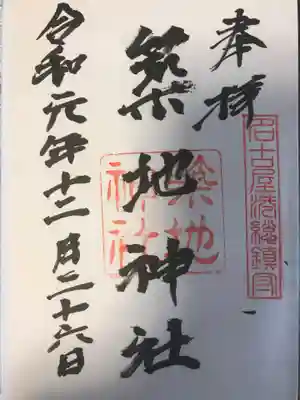 奉拝
名古屋港総鎮守
築地神社
築地神社
令和元年十二月二十六日